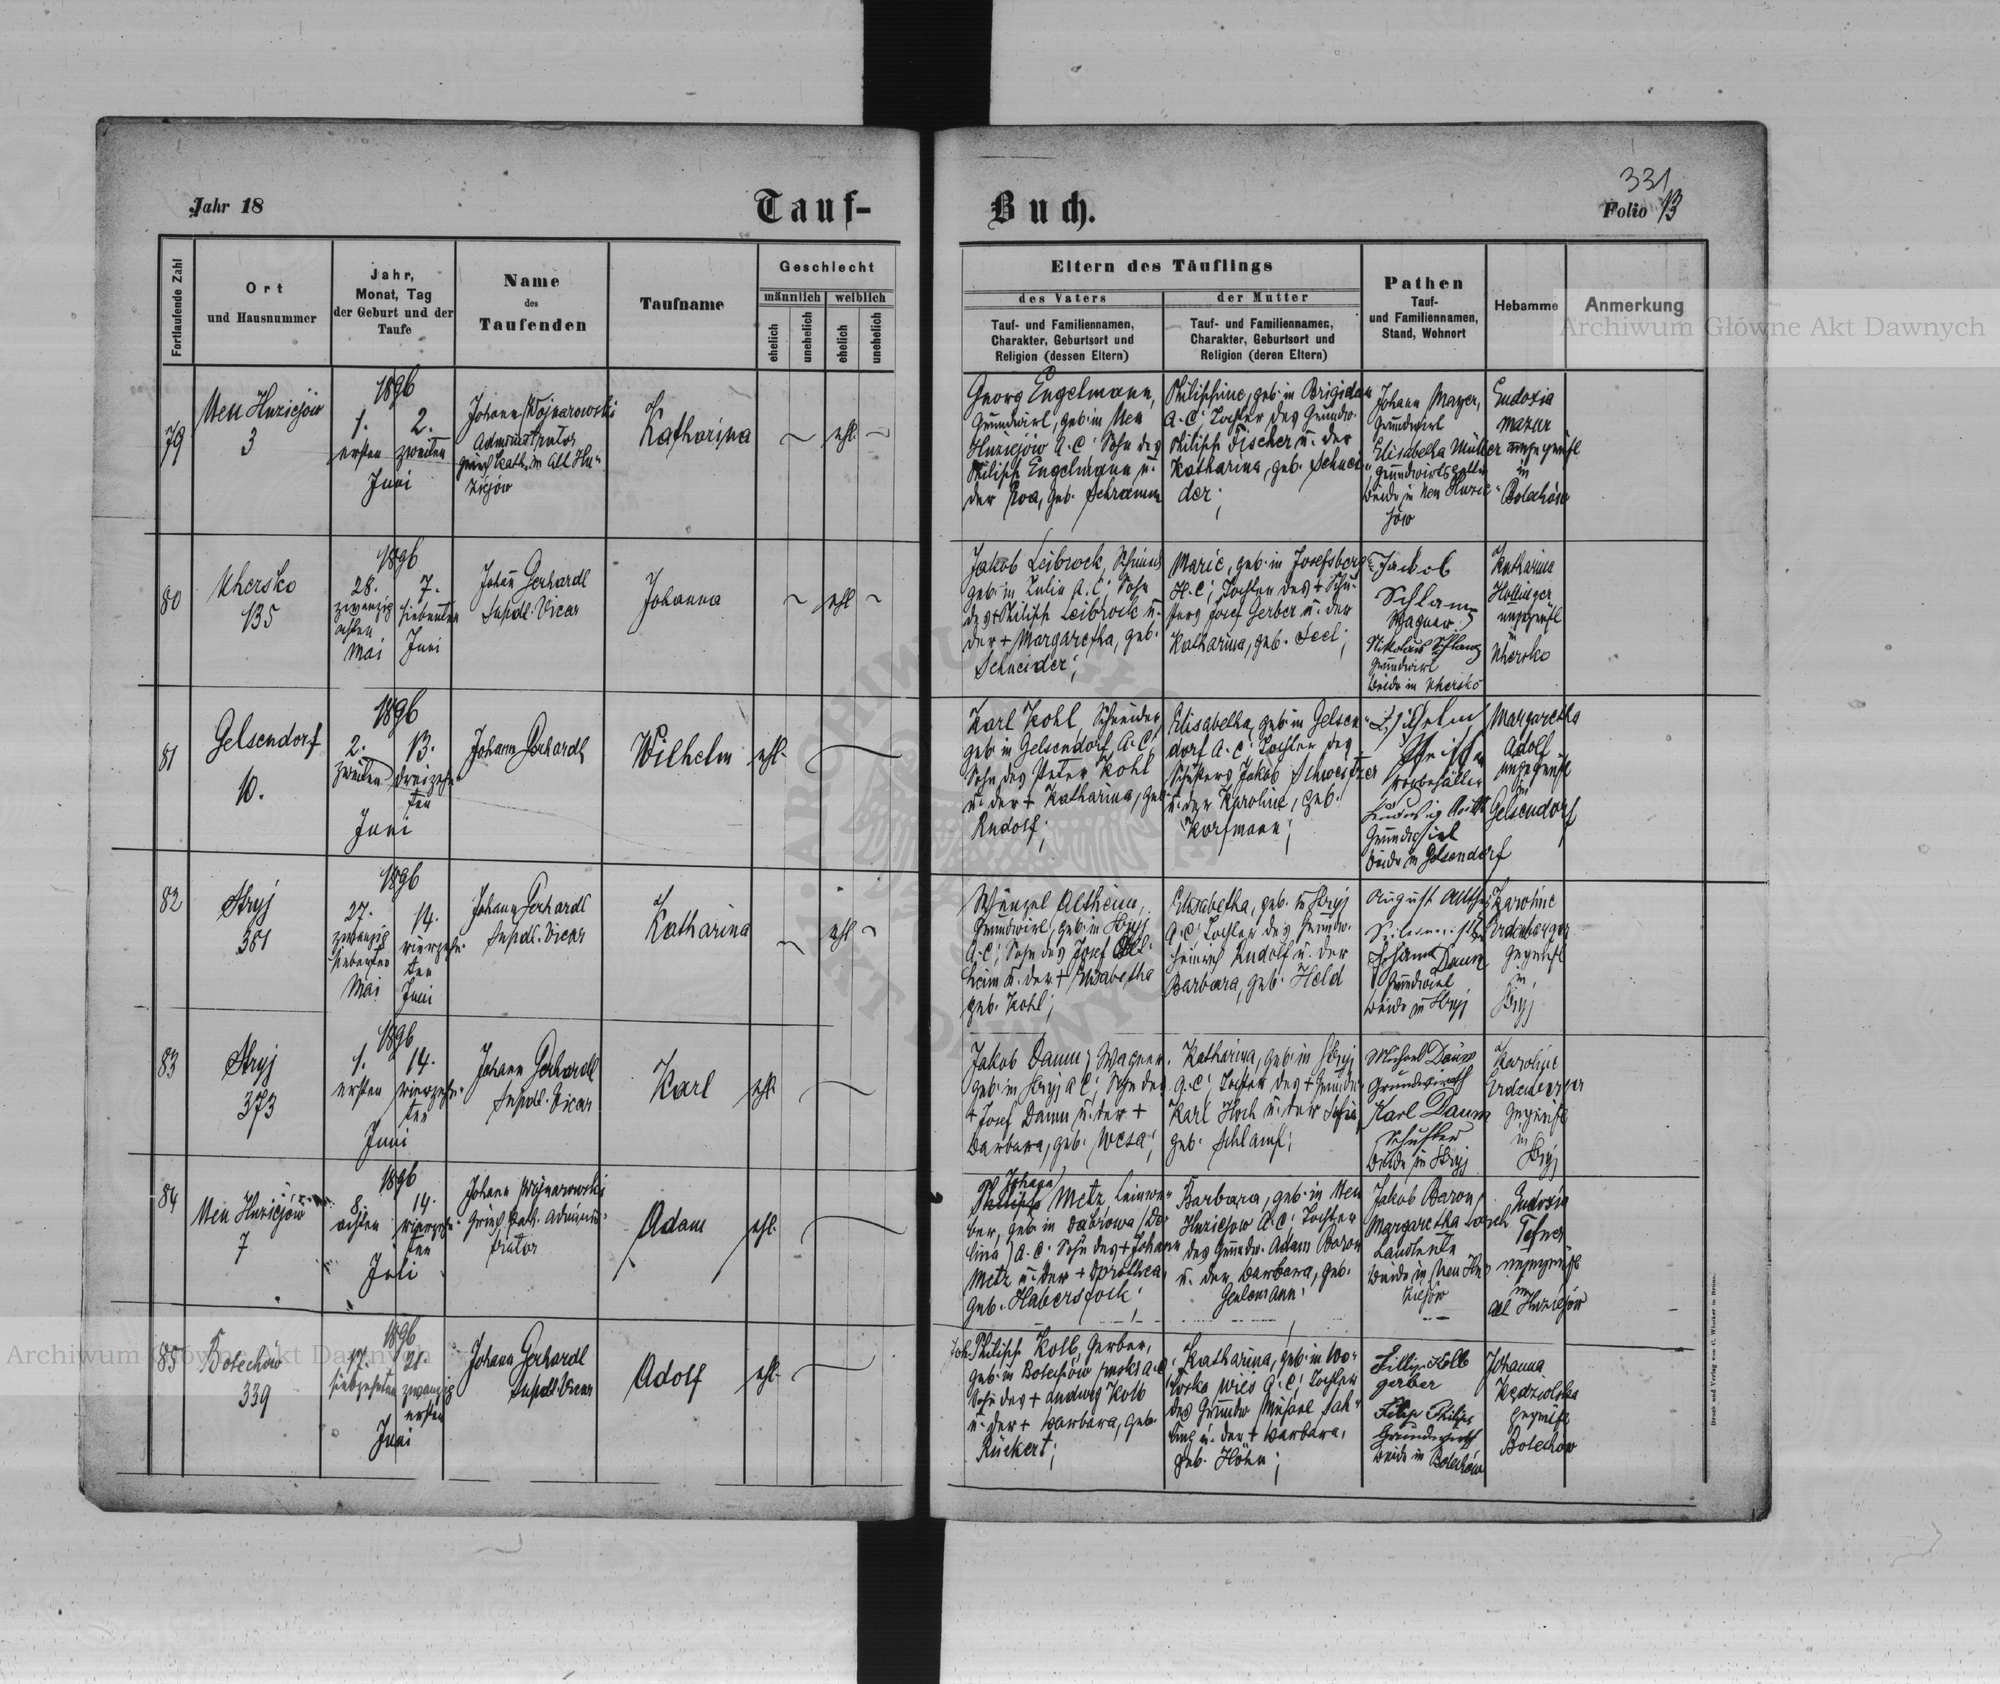 331
Jahr 18
Tauf-
Buch.
Folio 13
Fortlaufende Zahl
Ort
und Hausnummer
Jahr,
Monat, Tag
der Geburt und der
Taufe
Name
des
Taufenden
Taufname
Geschlecht
männlich
weiblich
ehelich
unehelich
ehelich
unehelich
Eltern des Täuflings
des Vaters
Tauf- und Familiennamen,
Charakter, Geburtsort und
Religion (dessen Eltern)
der Mutter
Tauf- und Familiennamen,
Charakter, Geburtsort und
Religion (deren Eltern)
Pathen
Tauf-
und Familiennamen,
Stand, Wohnort
Hebamme
Anmerkung
79
Neu Huziejów
3
1896
1. 2.
ersten zweiten
Juni
Johann Wojnarowski
Administrator
griech kath. in Alt Hu-
ziejów
Katharina
ehl.
Georg Engelmann,
Grundwirt, geb. in Neu
Huziejów A.C.; Sohn des
Philipp Engelmann u.
der Eva, geb. Schramm
Philippine, geb. in Brigidau
A.C.; Tochter des Grundw.
Philipp Fischer u. der
Katharina, geb. Schnei-
der;
Johann Mayer,
Grundwirt
Elisabetha Müller
Grundwirtsgattin
beide in Neu Huzie-
jów
Eudoxia
Mazur
ungeprüft
in
Bolechów
80
Uhersko
135
1896
28. 7.
zwanzig siebenten
achten
Mai Juni
Johann Gerhardt
Supdl. Vicar
Johanna
ehl
Jakob Leibrock, Schmied
geb. in A.C.; Sohn
des + Philipp Leibrock u.
der + Margaretha, geb.
Schneider;
Marie, geb. in Josefsberg
H.C.; Tochter des + Schu-
sters Josef Gerber u. der
Katharina, geb. Seel;
Jakob
Schlamp
Wagner
Nikolaus
Grundwirt
beide in Uhersko
Katharina
Hollinger
ungeprüft
in
Uhersko
81
Gelsendorf
10.
1896
2. 13.
zweiten dreizehn-
ten
Juni
Johann Gerhardt
Wilhelm
ehl.
Karl Kohl, Schneider
geb. in Gelsendorf, A.C.;
Sohn des Peter Kohl
u. der + Katharina, geb.
Rudolf;
Elisabetha, geb. in Gelsen-
dorf A.C.; Tochter des
Schusters Jakob Schweitzer
u. der Karoline, geb.
Korfmann;
Grundwirt
beide in Gelsendorf
Margaretha
Adolf
ungeprüft
in
Gelsendorf
82
Stryj
351
1896
27. 14.
zwanzig vierzehn-
siebenten ten
Mai Juni
Johann Gerhardt
Supdl. Vicar
Katharina
ehl
Wenzel Altheim,
Grundwirt, geb. in Stryj
A.C.; Sohn des Josef Alt-
heim u. der + Elisabetha
geb. Kohl;
Elisabetha, geb. in Stryj
A.C.; Tochter des Grundw.
Heinrich Rudolf u. der
Barbara, geb. Held
August
Johann
Daum
Grundwirt
beide in Stryj
Karoline
Erdenberger
geprüft
in
Stryj
83
Stryj
373
1896
1. 14.
ersten vierzehn-
ten
Juni
Johann Gerhardt
Supdl. Vicar
Karl
ehl.
Jakob Daum, Wagner
geb. in Stryj A.C.; Sohn des
+ Josef Daum u. der +
Barbara, geb. Wesa;
Katharina, geb. in Stryj
A.C.; Tochter des + Grundw.
Karl Hoch u. der Sofia,
geb. Schlamp;
Michael Daum
Grundwirth
Karl Daum
Schuster
beide in Stryj
Karoline
Erdenberger
geprüft
in
Stryj
84
Neu Huziejów
7
1896
8. 14.
achten vierzehn-
ten
Juli
Johann Wojnarowski
Griech. kath. Admini-
strator
Adam
ehl.
Johann
Philipp Metz, Leinwe-
ber, geb. in Dabrowa (Do-
lina) A.C. Sohn des + Johann
Metz u. der + Dorothea,
geb. Habersfock;
Barbara, geb. in Neu
Huziejow A.C.; Tochter
des Grundw. Adam Baron
u. der Barbara, geb.
Jakob Baron,
Margaretha
Landleute
beide in Neu Hu-
ziejów
Eudoxia
ungeprüft
in
alt Huziejów
85
Bolechów
339
1896
17. 21.
siebzehnten zwanzig
ersten
Juni
Johann Gerhardt
Supdl. Vicar
Adolf
ehl.
Philipp Kolb, Gerber,
geb. in Bolechów A.C.;
Sohn des + Ludwig Kolb
u. der + Barbara, geb.
Rückert;
Katharina, geb. in Wo-
A.C.; Tochter
des Grundw. Michael
u. der + Barbara,
geb. Höhn;
Fillip Kolb
gerber
Filip Philips
Grundwirth
beide in Bolechów
Johanna
Kędziolska
geprüft
Bolechow
Druck und Verlag von C. Winiker in Brünn.
Archiwum Główne Akt Dawnych
Archiwum Główne Akt Dawnych